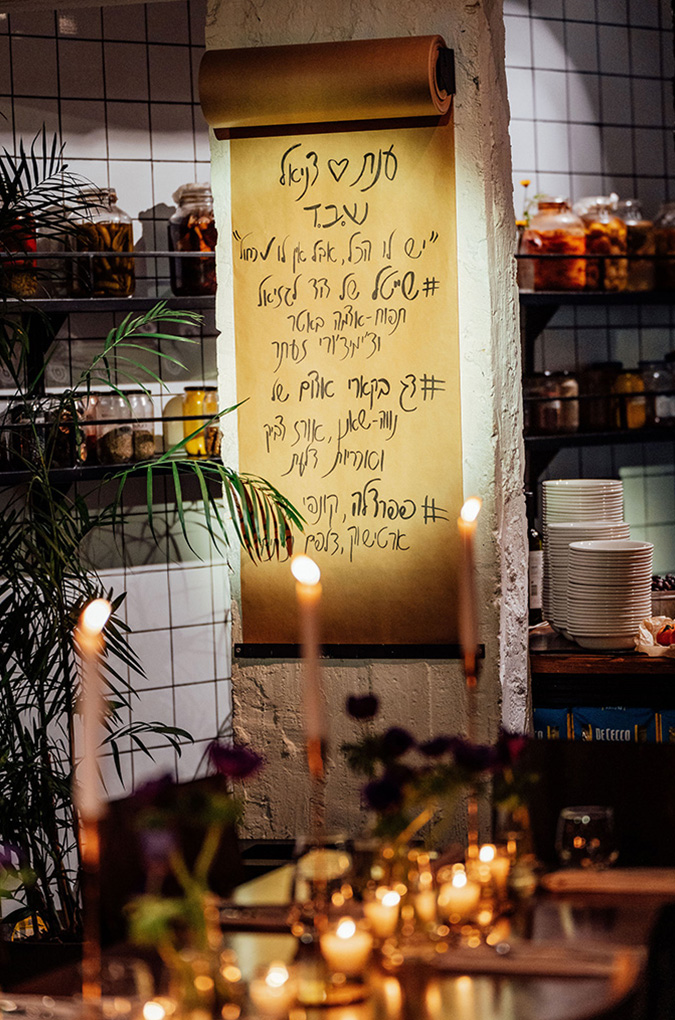 ענת ♡ דניאל
נ.ש.ב.ד
"יש לו הכל, אבל אין לו מחול"
#שייטל של הד לגזיאל
תפוח-אדמה באטר
וצ'ימיצ'ורי זעתר
#דג בקארי אדום של
נווה-שאנן, אורז דביק
וסוכריות דלעת
#פפרדלה, קונפי
ארטישוק, צלפים
DE CECCO